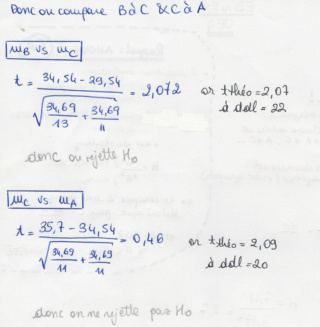 Donc on compare B à C & C à A
mB vs mC
t = 34,54 - 29,54 / √(34,69/13 + 34,69/11) = 2,072 or t théo = 2,07
à ddl = 22
donc on rejette H0
mC vs mA
t = 35,7 - 34,54 / √(34,69/11 + 34,69/11) = 0,46 or t théo = 2,09
à ddl = 20
donc on ne rejette pas H0